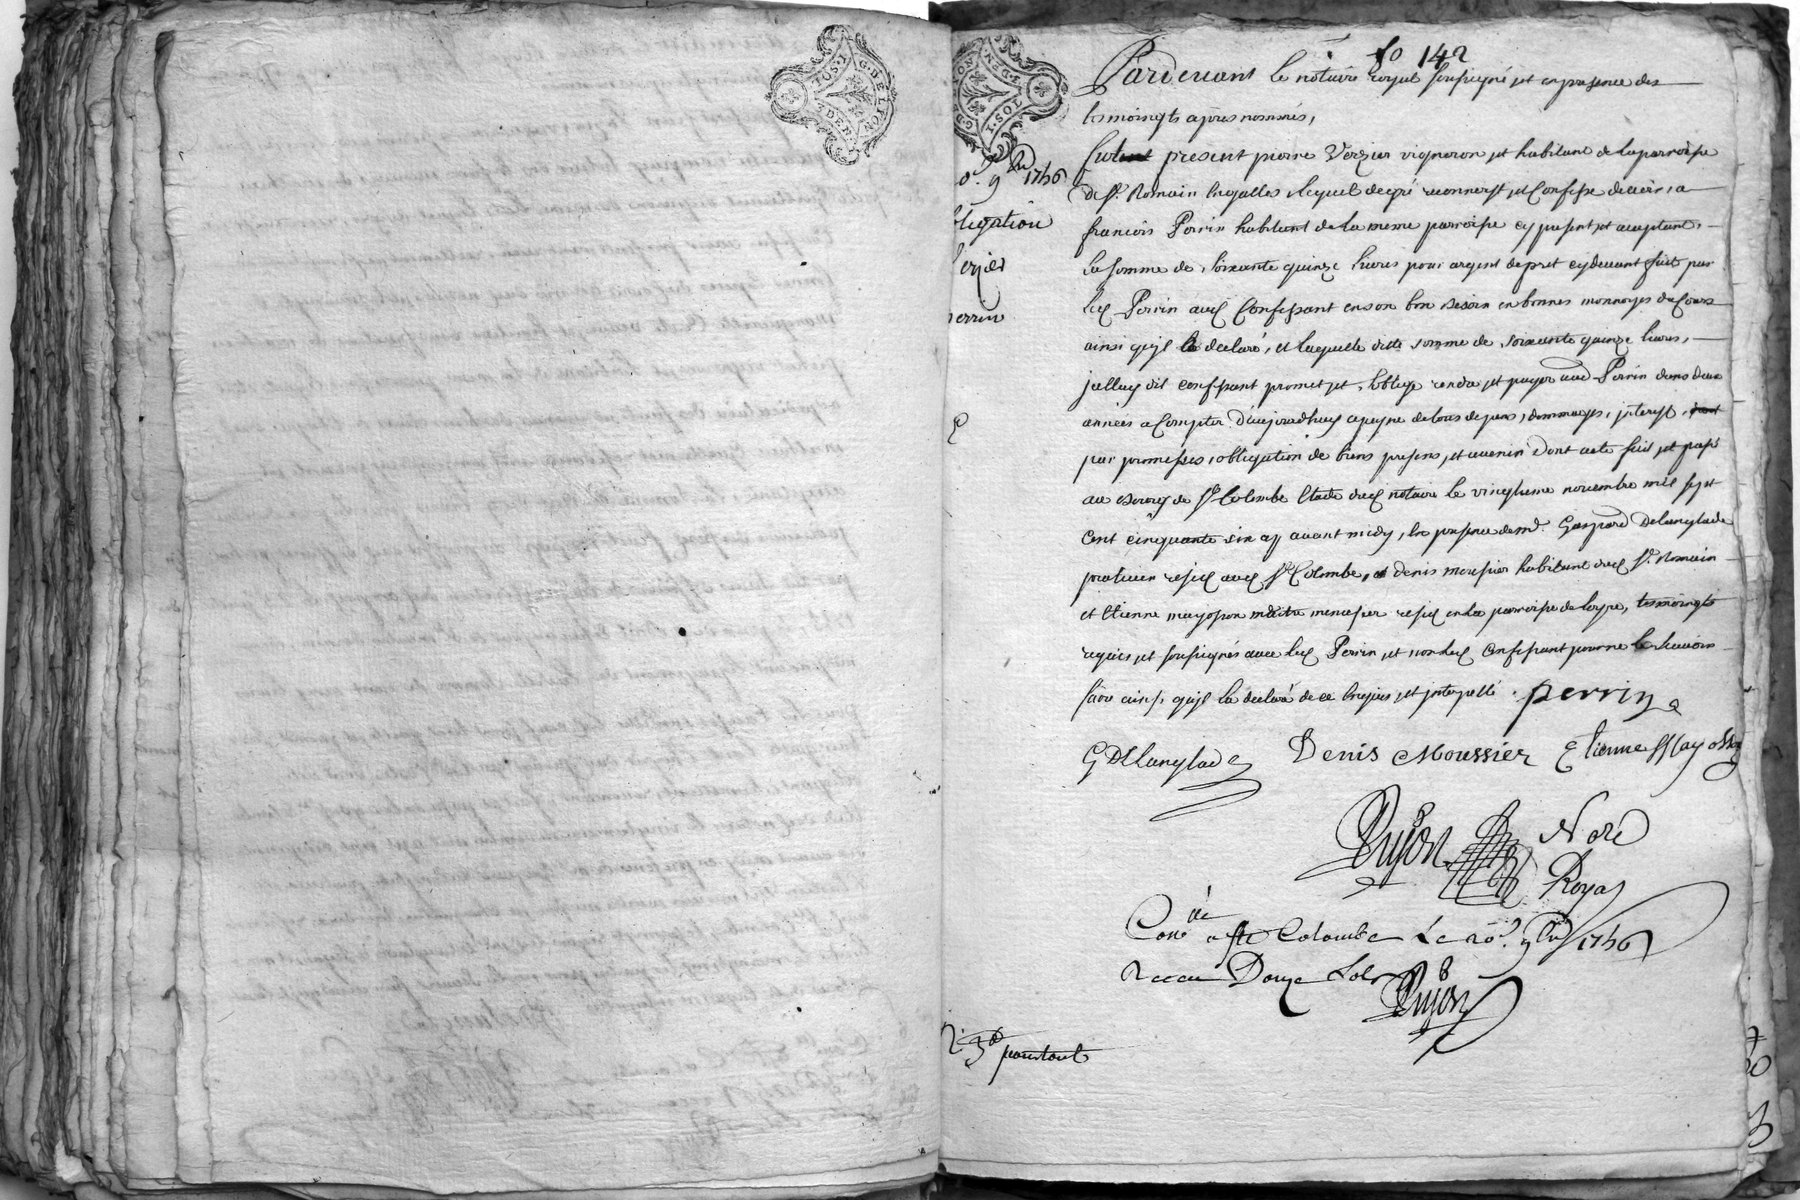 fo 142
Pardevant le notaire royal soussigné et en presence des
tesmoingts apres nommés,
fut present pierre Verzier vigneron et habitant de la parroisse
de St. Romain en galles, lequel de gré reconnoist et confesse devoir, a
francois Perrin habitant de la meme parroisse cy present et aceptant,
la somme de soixante quinze livres pour argent de pret cy devant fait par
led Perrin aud Confessant en son bon besoin en bonnes monnoyes du Cours
ainsi qu'jl la declaré, et laquelle ditte somme de soixante quinze livres,
jcelluy dit confessant promet et s'oblige rendre et payer aud Perrin dans deux
années a Compter d'aujourdhuy a payne de tous depens, dommages, jnterest,
par promesses, obligation de biens presens, et avenir Dont acte fait et passé
au bourg de Ste Colombe Etude dud notaire le vingtieme novembre mil sept
cent cinquante six avant midy, En presence de md. Gaspard Delanglade
praticien resid aud Ste Colombe, denis moussier habitant dud St. Romain
et Etienne mayosson maitre menusier resid en la parroisse de loyre, tesmoingts
requis et soussignés avec led Perrin et non led Confessant pour ne le scavoir
faire ainsi qu'jl la declaré de ce enquis et jnterpellé. perrin
G Delanglade Denis Moussier Etienne Mayosson
Dujon Nore
Royal
Conlé a ste Colombe Le 20e. 9bre 1756
Receu Douze sols Dujon
20e. 9bre 1756
obligation
Verzier
Perrin
G.D.E LION
3 DEN
1.SOL